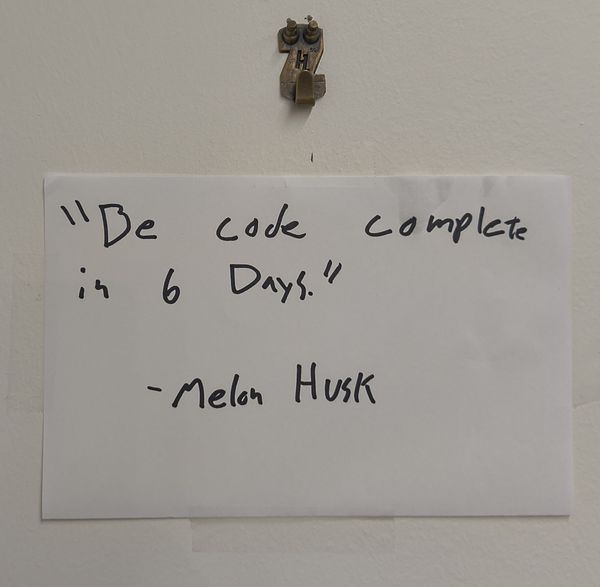 "Be code complete
in 6 Days."
-Melon Husk